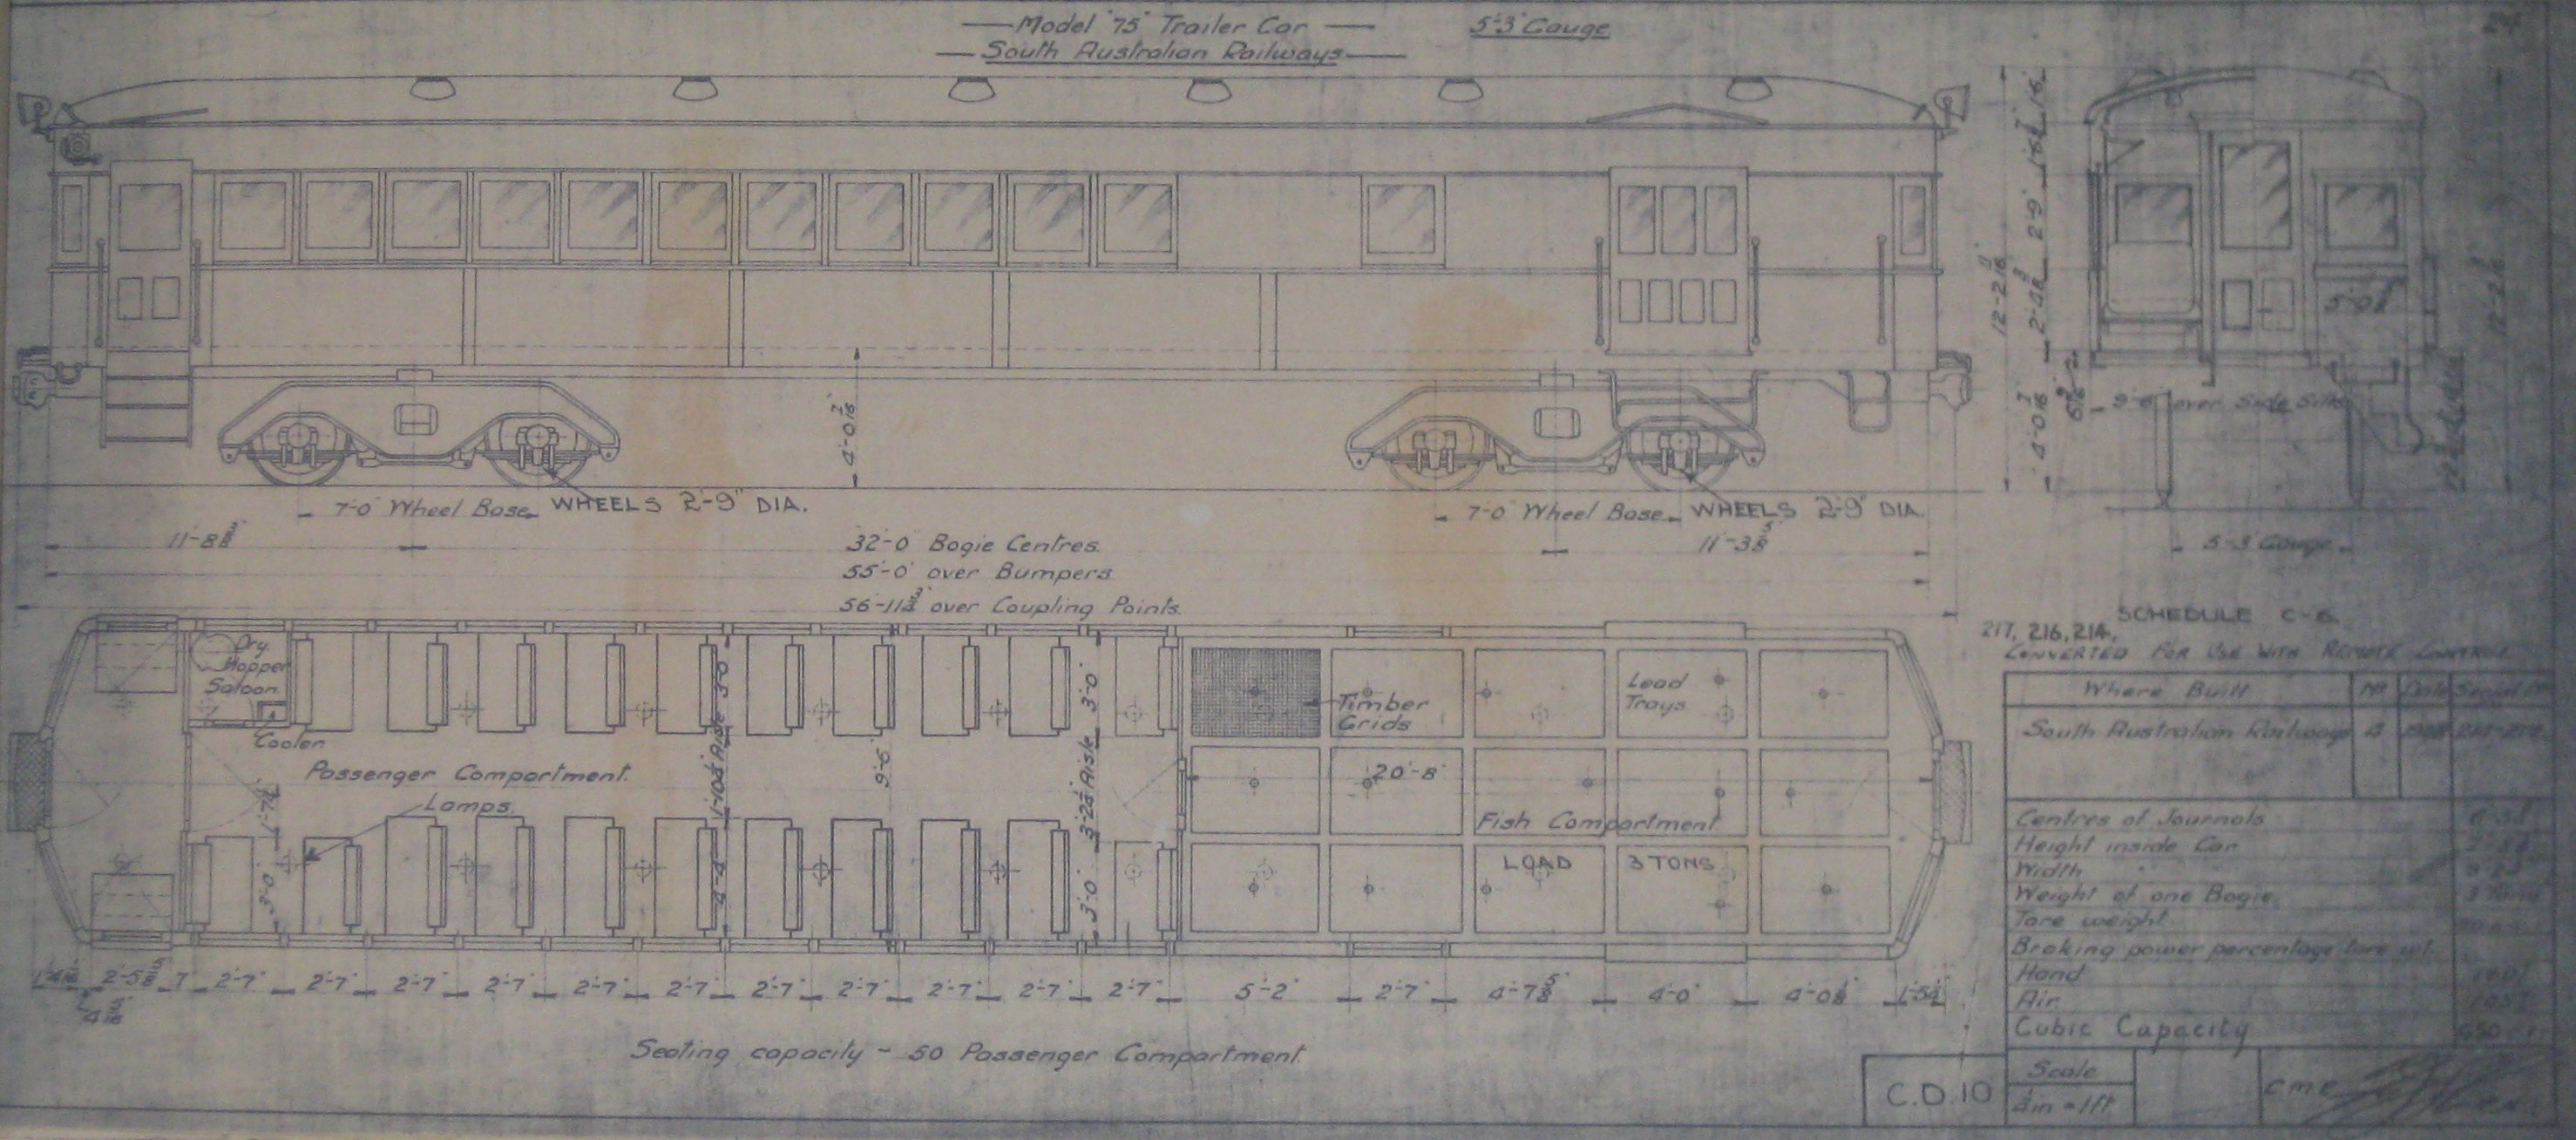 Model "75" Trailer Car
5'-3" Gauge
South Australian Railways
24
12'-2 11/16"
2'-9"
2'-4 3/8"
4'-0 7/16"
4'-0 7/16"
9'-6" over Side Sills
7'-0" Wheel Base WHEELS 2'-9" DIA.
7'-0" Wheel Base WHEELS 2'-9" DIA
5'-3" Gauge
11'-8 3/8"
32'-0" Bogie Centres.
11'-3 5/8"
55'-0" over Bumpers
56'-11 3/4" over Coupling Points.
Dry
Hopper
Saloon
Cooler
Passenger Compartment.
Lamps.
3'-0"
1'-10 1/2" Aisle
4'-4"
9'-6"
3'-0"
3'-2 1/2" Aisle
3'-0"
3'-0"
Timber
Grids
Lead
Trays
20'-8"
Fish Compartment
LOAD 3 TONS
2'-5 5/8" 7" 2'-7" 2'-7" 2'-7" 2'-7" 2'-7" 2'-7" 2'-7" 2'-7" 2'-7" 2'-7" 2'-7" 5'-2" 2'-7" 4'-7 5/8" 4'-0" 4'-0 1/8"
4 5/16"
Seating capacity - 50 Passenger Compartment.
SCHEDULE C-6
217, 216, 214,
CONVERTED FOR USE WITH REMOTE CONTROL
Where Built No Date
South Australian Railways
Centres of Journals
Height inside Car
Width "
Weight of one Bogie.
Tare weight
Braking power percentage tare wt.
Hand
Air.
Cubic Capacity
C.D. 10
Scale
1/4 in = 1 ft
C.M.E.